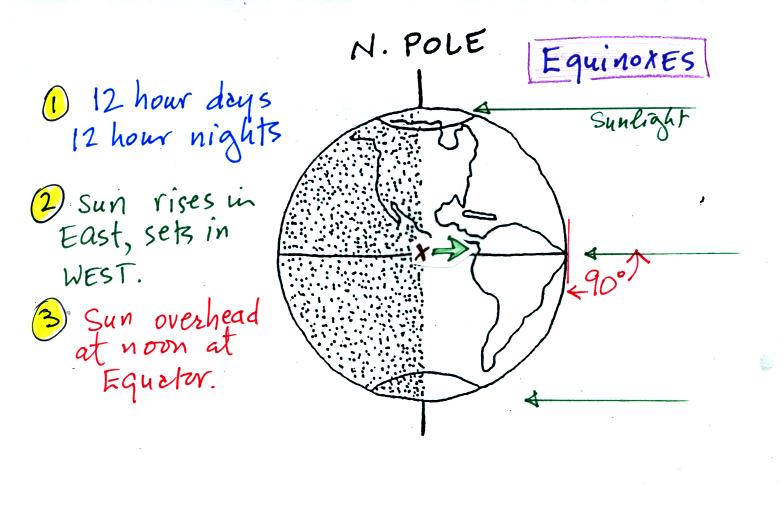 N. POLE
EquinoxES
1 12 hour days
12 hour nights
Sunlight
2 Sun rises in
East, sets in
WEST.
x
90°
3 Sun overhead
at noon at
Equator.